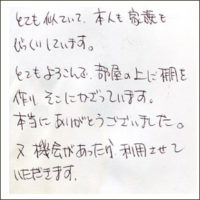 とても似ていて、本人も家族も
びっくりしています。
とてもよろこんで、部屋の上に棚を
作り、そこにかざっています。
本当にありがとうございました。
又機会があったら利用させて
いただきます。